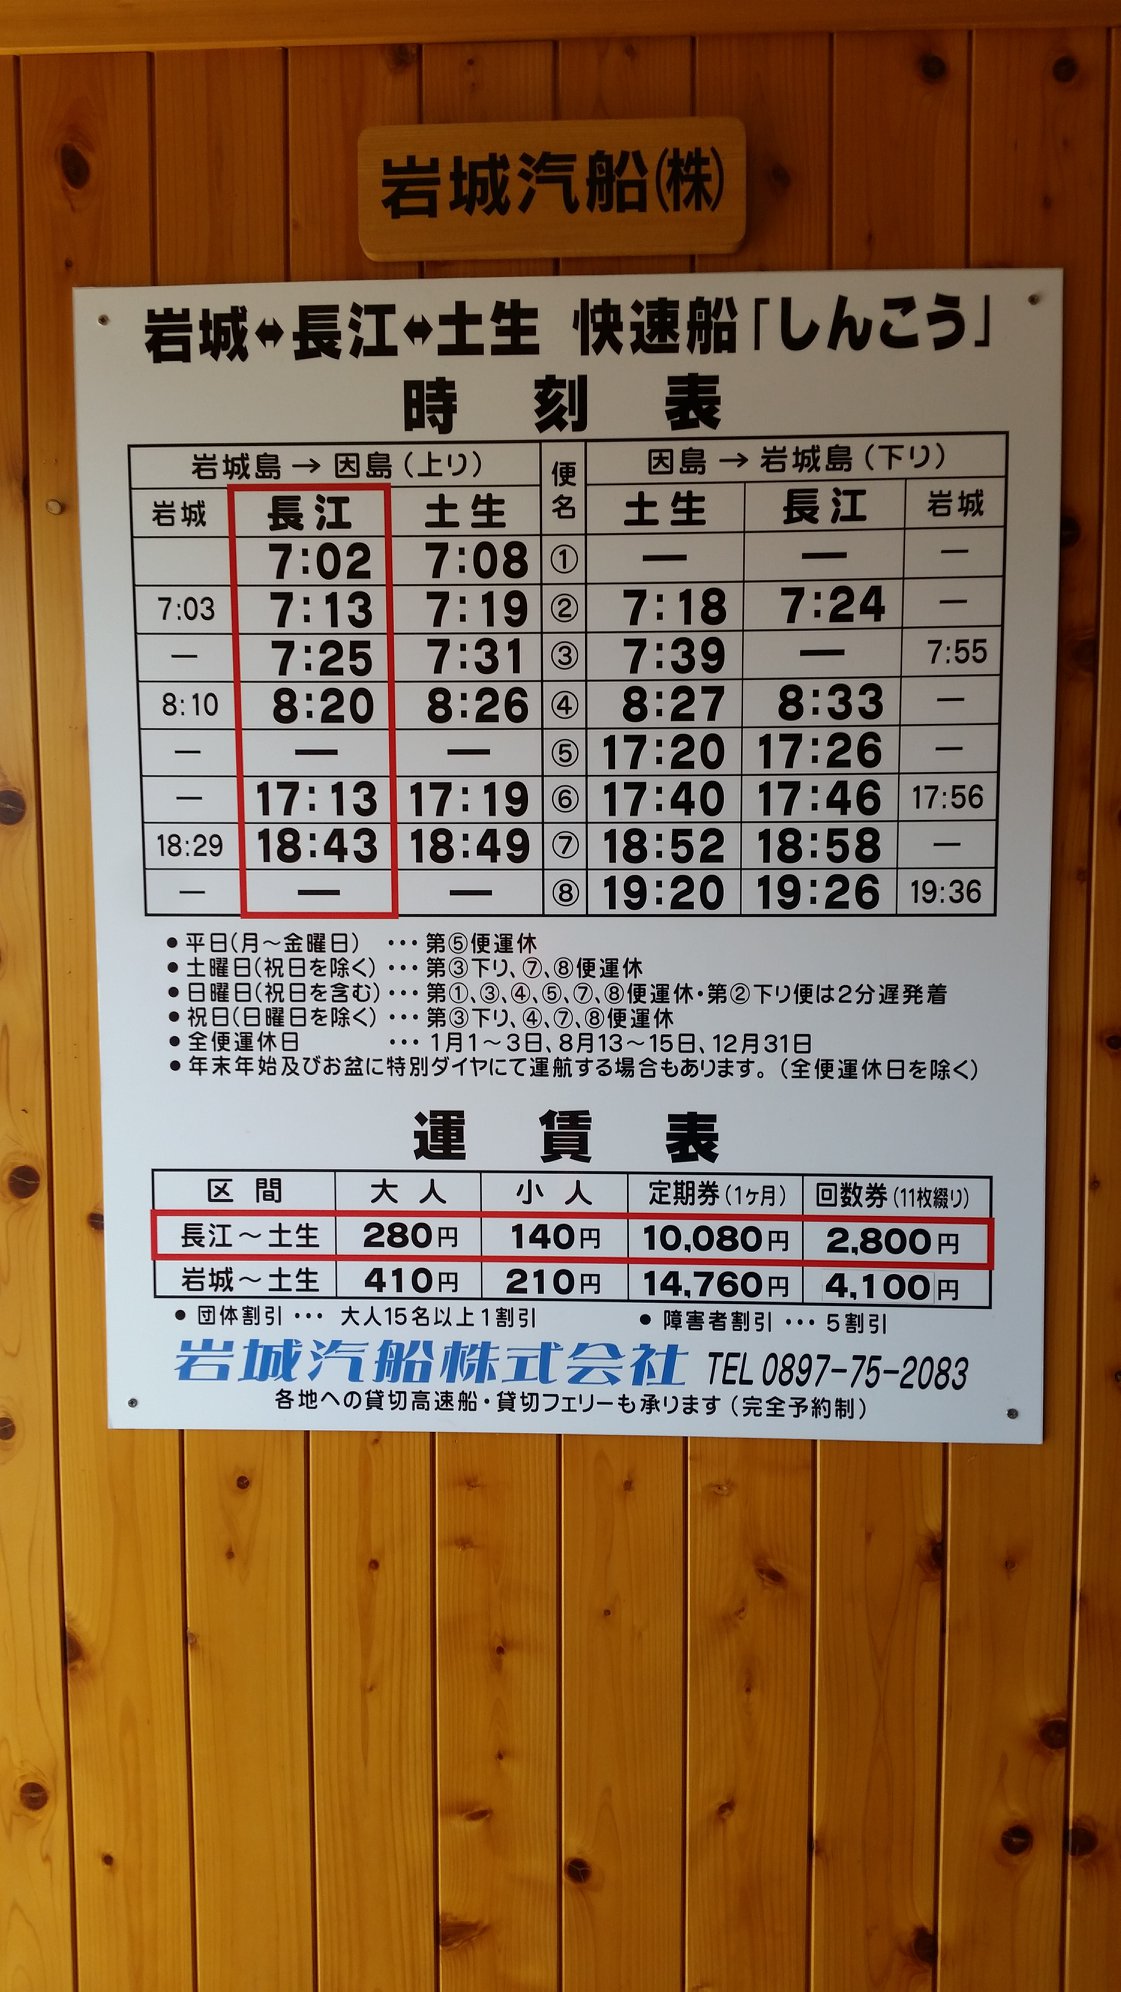 岩城汽船(株)
岩城↔長江↔土生 快速船「しんこう」
時刻表
岩城島→因島(上り) 便名 因島→岩城島(下り)
岩城 長江 土生 土生 長江 岩城
7:02 7:08 ① — — —
7:03 7:13 7:19 ② 7:18 7:24 —
— 7:25 7:31 ③ 7:39 — 7:55
8:10 8:20 8:26 ④ 8:27 8:33 —
— — — ⑤ 17:20 17:26 —
— 17:13 17:19 ⑥ 17:40 17:46 17:56
18:29 18:43 18:49 ⑦ 18:52 18:58 —
— — — ⑧ 19:20 19:26 19:36
●平日(月〜金曜日) ･･･ 第⑤便運休
●土曜日(祝日を除く)･･･ 第③下り、⑦、⑧便運休
●日曜日(祝日を含む)･･･ 第①、③、④、⑤、⑦、⑧便運休・第②下り便は2分遅発着
●祝日(日曜日を除く)･･･ 第③下り、④、⑦、⑧便運休
●全便運休日 ･･･ 1月1〜3日、8月13〜15日、12月31日
●年末年始及びお盆に特別ダイヤにて運航する場合もあります。(全便運休日を除く)
運賃表
区間 大人 小人 定期券(1ヶ月) 回数券(11枚綴り)
長江〜土生 280円 140円 10,080円 2,800円
岩城〜土生 410円 210円 14,760円 4,100円
●団体割引･･･ 大人15名以上1割引 ●障害者割引･･･5割引
岩城汽船株式会社 TEL 0897-75-2083
各地への貸切高速船・貸切フェリーも承ります(完全予約制)